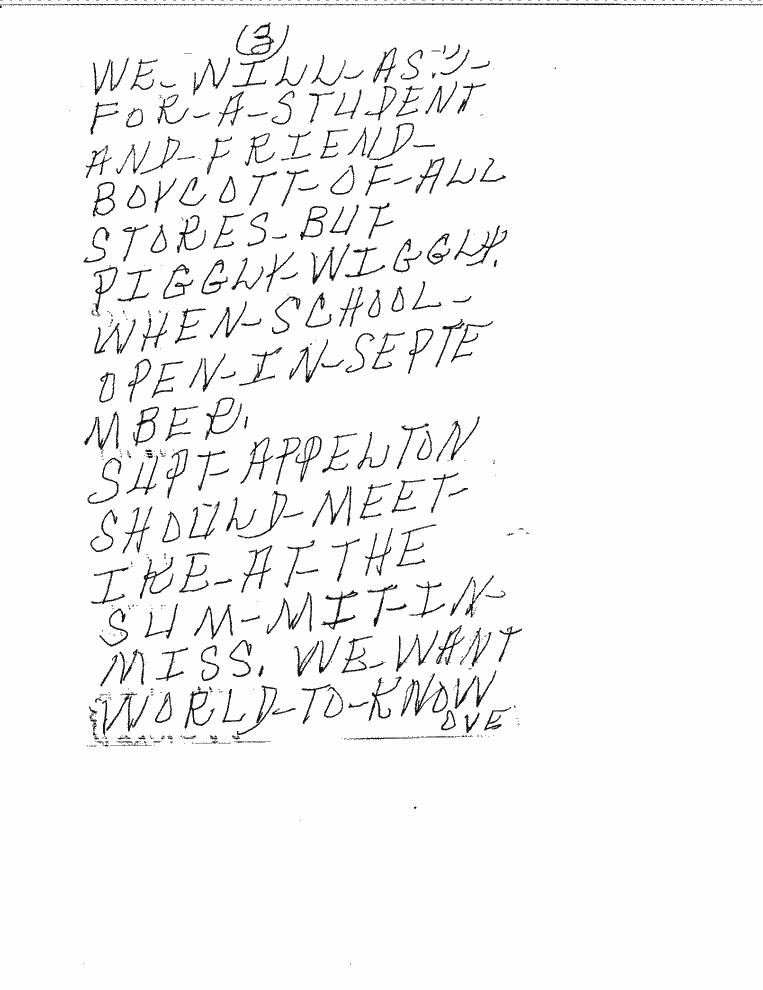 (3)
WE-WILL-ASK-
FOR-A-STUDENT
AND-FRIEND-
BOYCOTT-OF-ALL
STORES-BUT
PIGGLY-WIGGLY.
WHEN-SCHOOL-
OPEN-IN-SEPTE
MBER.
SUPT-APPELTON
SHOULD-MEET-
IKE-AT-THE
SUM-MIT-IN-
MISS. WE-WANT
WORLD-TO-KNOW
OVE